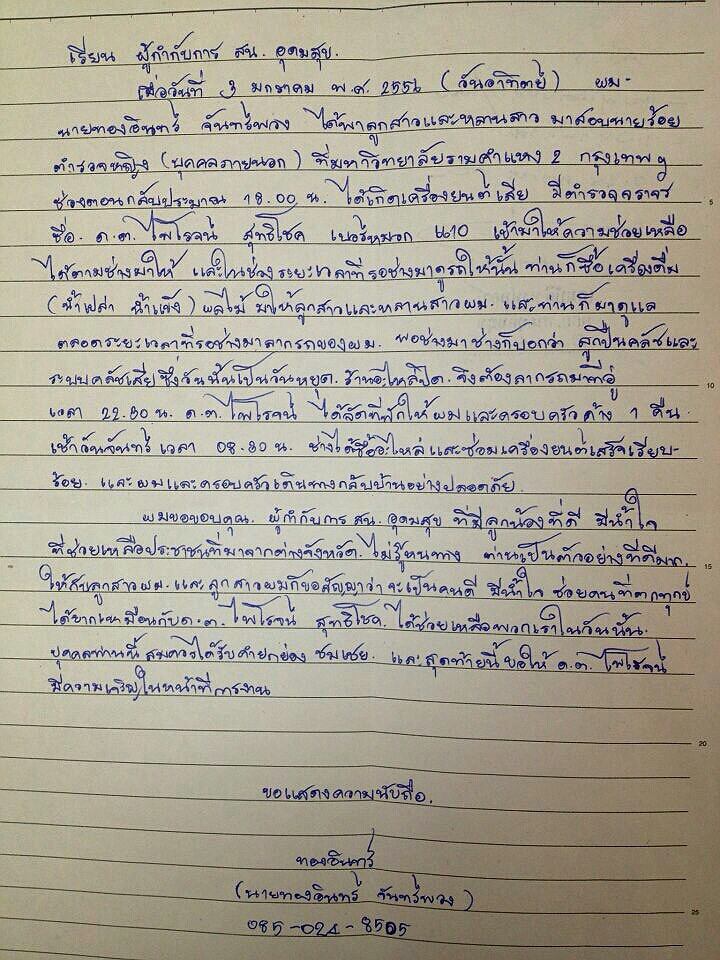 เรียน ผู้กำกับการ สน. อุดมสุข.
เมื่อวันที่ 3 มกราคม พ.ศ. 2556 (วันอาทิตย์) ผม-
นายทองอินทร์ จันทร์พวง ได้พาลูกสาวและหลานสาว มาสอบนายร้อย
ตำรวจหญิง (บุคคลภายนอก) ที่มหาวิทยาลัยรามคำแหง 2 กรุงเทพฯ
ช่วงตอนกลับประมาณ 18.00 น. ได้เกิดเครื่องยนต์เสีย มีตำรวจจราจร
ชื่อ. ด.ต. ไพโรจน์ สุทธิโชค เบอร์หมวก 4410 เข้ามาให้ความช่วยเหลือ
ได้ตามช่างมาให้ และในช่วงระยะเวลาที่รอช่างมาดูรถให้นั้น ท่านก็ซื้อเครื่องดื่ม
(น้ำเปล่า น้ำแข็ง) ผลไม้ มาให้ลูกสาวและหลานสาวผม. และท่านก็มาดูแล
ตลอดระยะเวลาที่รอช่างมาลากรถของผม. พอช่างมาช่างก็บอกว่า ลูกปืนคลัชและ
ระบบคลัชเสียซึ่งวันนั้นเป็นวันหยุด. ร้านอะไหล่ปิด. จึงต้องลากรถมาที่อู่
เวลา 22.30 น. ด.ต. ไพโรจน์ ได้จัดที่พักให้ผมและครอบครัวค้าง 1 คืน.
เช้าวันจันทร์เวลา 08.30 น. ช่างได้ซื้ออะไหล่และซ่อมเครื่องยนต์เสร็จเรียบ-
ร้อย. และผมและครอบครัวเดินทางกลับบ้านอย่างปลอดภัย.
ผมขอขอบคุณ. ผู้กำกับการ สน. อุดมสุข ที่มีลูกน้องที่ดี มีน้ำใจ
ที่ช่วยเหลือประชาชนที่มาจากต่างจังหวัด. ไม่รู้หนทาง ท่านเป็นตัวอย่างที่ดีมาก.
ให้กับลูกสาวผม. และ ลูกสาวผมก็ขอสัญญาว่า จะเป็นคนดี มีน้ำใจ ช่วยคนที่ตกทุกข์
ได้ยากเหมือนกับ ด.ต. ไพโรจน์ สุทธิโชค. ได้ช่วยเหลือพวกเราในวันนั้น.
บุคคลท่านนี้ สมควรได้รับคำยกย่อง ชมเชย. และสุดท้ายนี้ ขอให้ ด.ต. ไพโรจน์
มีความเจริญในหน้าที่การงาน
ขอแสดงความนับถือ.
ทองอินทร์
(นายทองอินทร์ จันทร์พวง)
085-024-8505